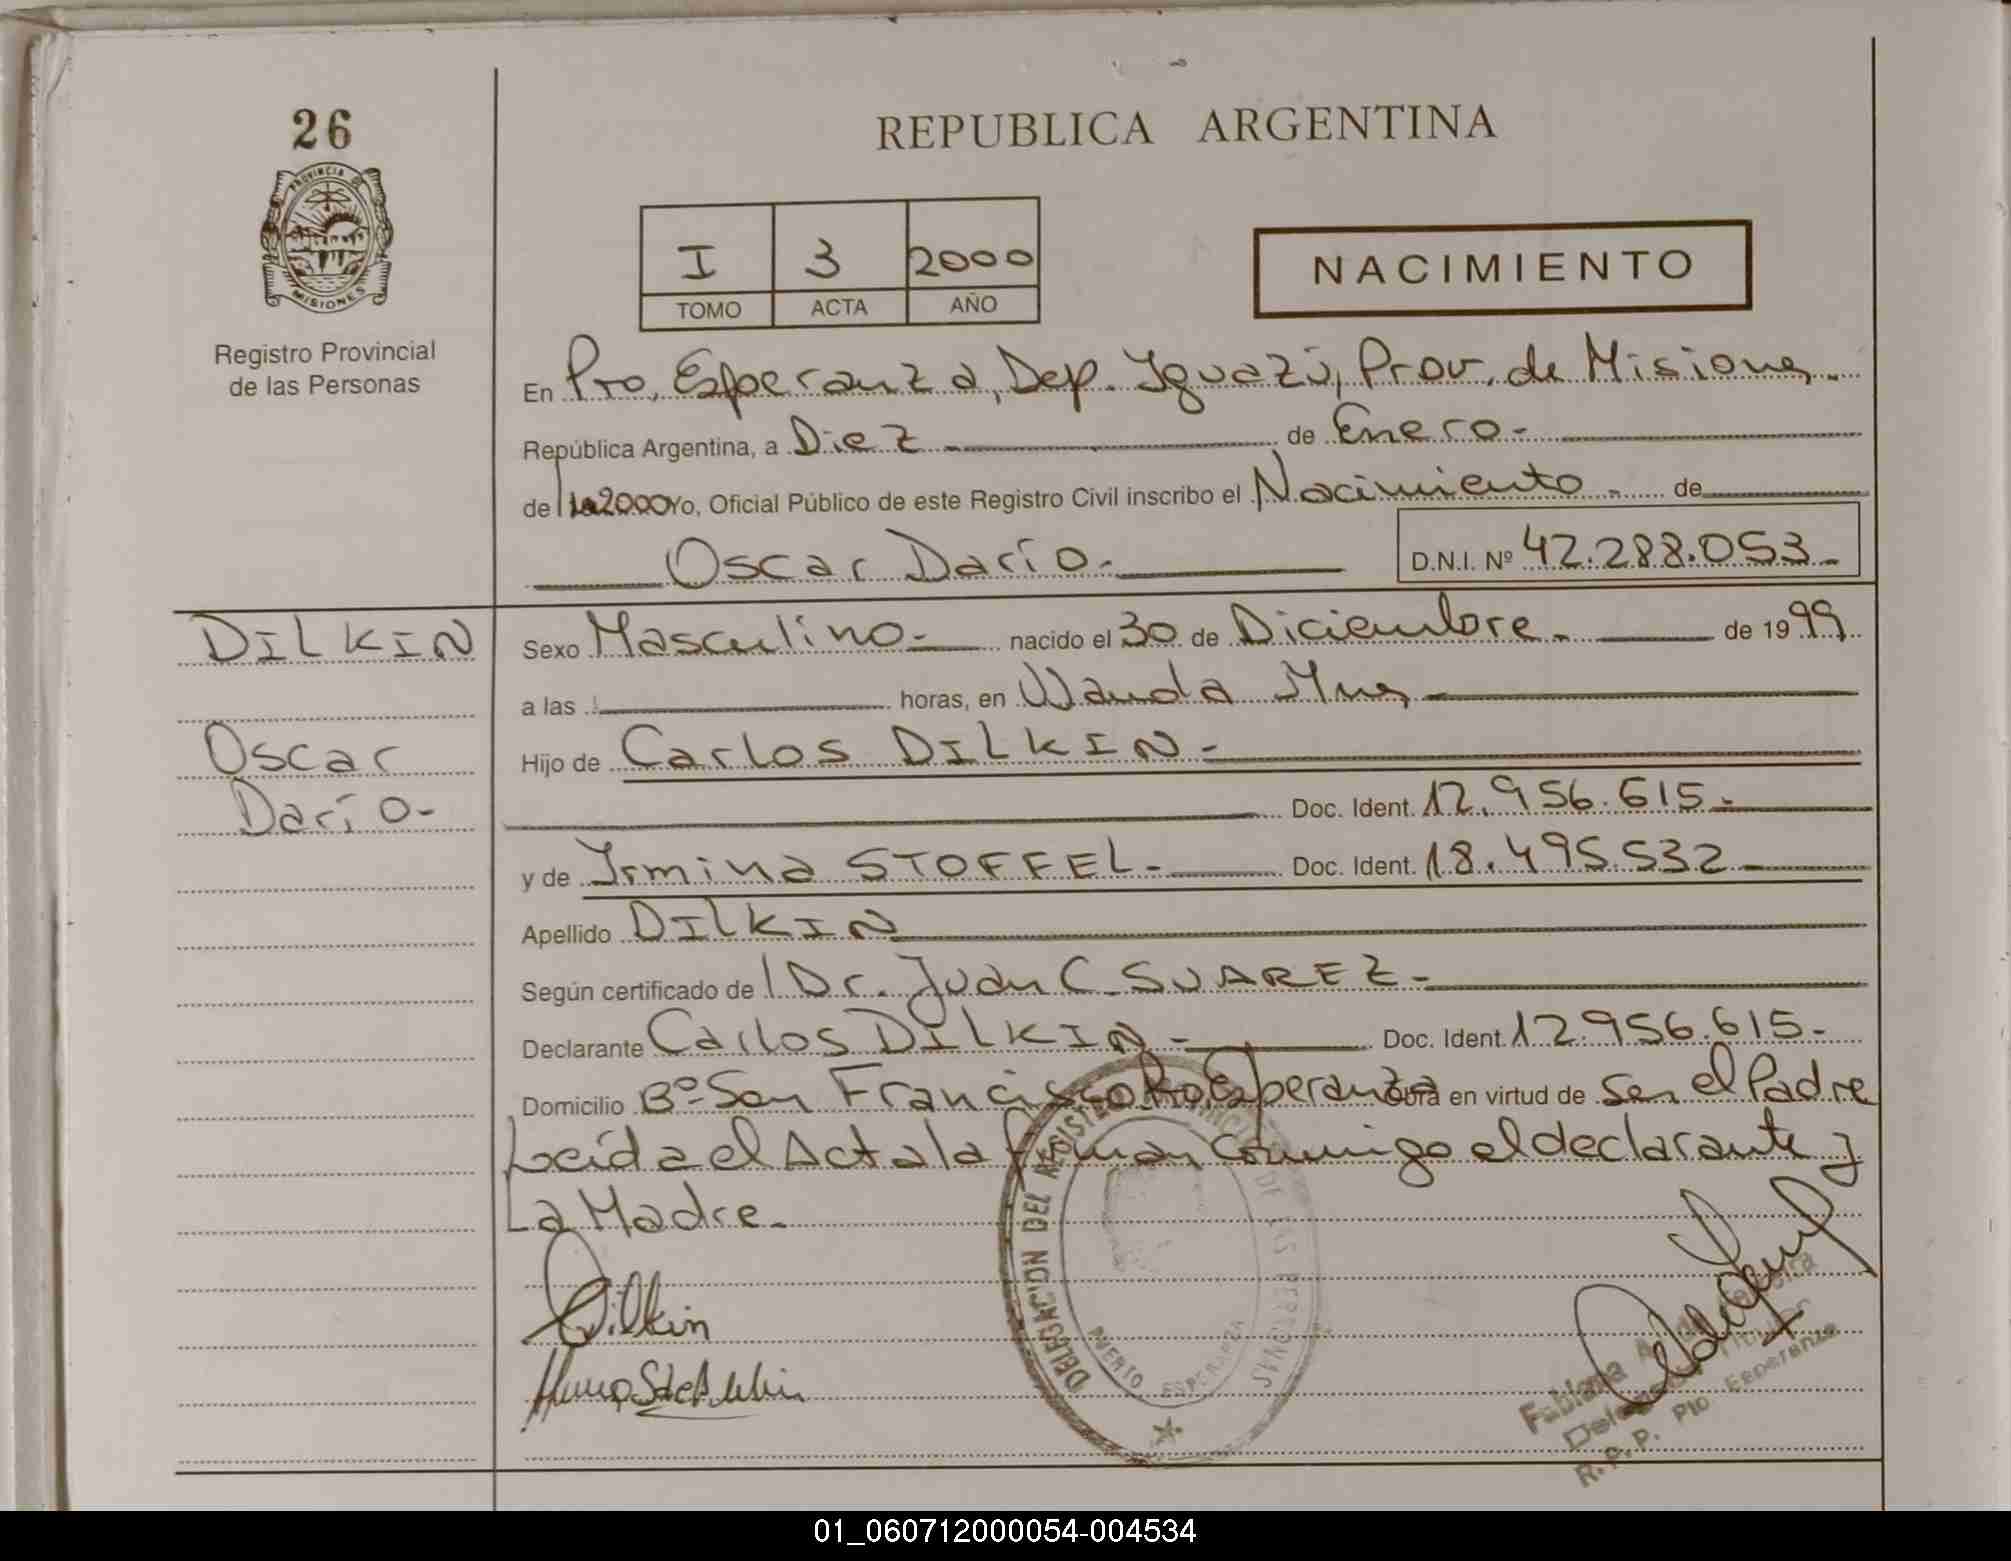 26
PROVINCIA DE
MISIONES
Registro Provincial
de las Personas
REPUBLICA ARGENTINA
I 3 2000
TOMO ACTA AÑO
NACIMIENTO
En Pto. Esperanza, Dep. Yguazú, Prov. de Misiones.
República Argentina, a Diez de Enero.-
de 2000 Yo, Oficial Público de este Registro Civil inscribo el Nacimiento.- de
Oscar Darío.-
D.N.I. Nº 42.288.053.-
DILKIN
Oscar
Darío-
Sexo Masculino.- nacido el 30 de Diciembre.- de 1999.
a las horas, en Wanda Mnes
Hijo de Carlos DILKIN.-
Doc. Ident. 12.956.615.-
y de Yrmina STOFFEL.- Doc. Ident. 18.495.532
Apellido DILKIN
Según certificado de Dr. Juan C. SUAREZ.-
Declarante Carlos DILKIN.- Doc. Ident. 12.956.615.-
Domicilio Bº San Francisco Pto. Esperanza obra en virtud de Ser el Padre
Leída el Acta la firman conmigo el declarante y
La Madre.-
Dilkin
DELEGACION DEL REGISTRO PROVINCIAL DE LAS PERSONAS
PUERTO ESPERANZA
Fabiana
R.P.P. Pto Esperanza
01_060712000054-004534